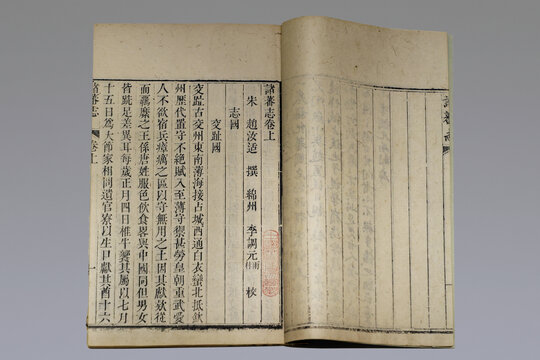 諸蕃志卷上
宋 趙汝适 撰 綿州 李調元 雨村 校
志國
交趾國
交趾古交州東南薄海接占城西通白衣蠻北抵欽
州歷代置守不絕賦入至薄守禦甚勞皇朝重武愛
人不欲宿兵瘴癘之區以守無用之土因其獻欵從
而羈縻之王係唐姓服色飲食畧與中國同但男女
皆跣足差異耳每歲正月四日椎牛饗其屬以七月
十五日爲大節家相問遺官寮以生口獻其酋十六
諸蕃志 卷上 一